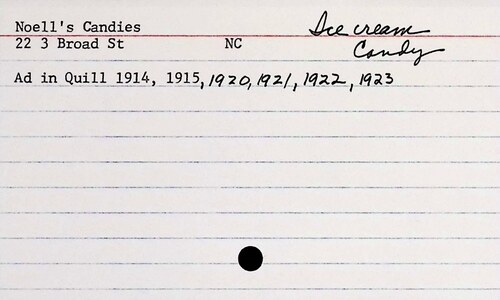 Noell's Candies
Ice cream
22 3 Broad St NC
Candy
Ad in Quill 1914, 1915, 1920, 1921, 1922, 1923